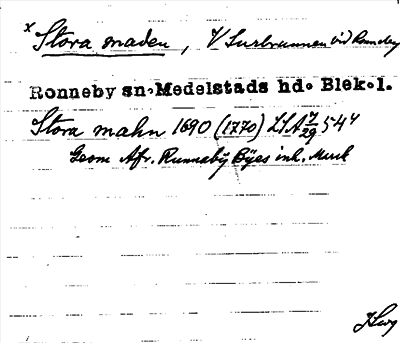 x Stora maden, V Surbrunnen vid Ronneby
Ronneby sn. Medelstads hd. Blek. l.
Stora mahn 1690 (1770) LSA 7/29 54 4
Geom Afr. Runnaby Byes ink. Mark